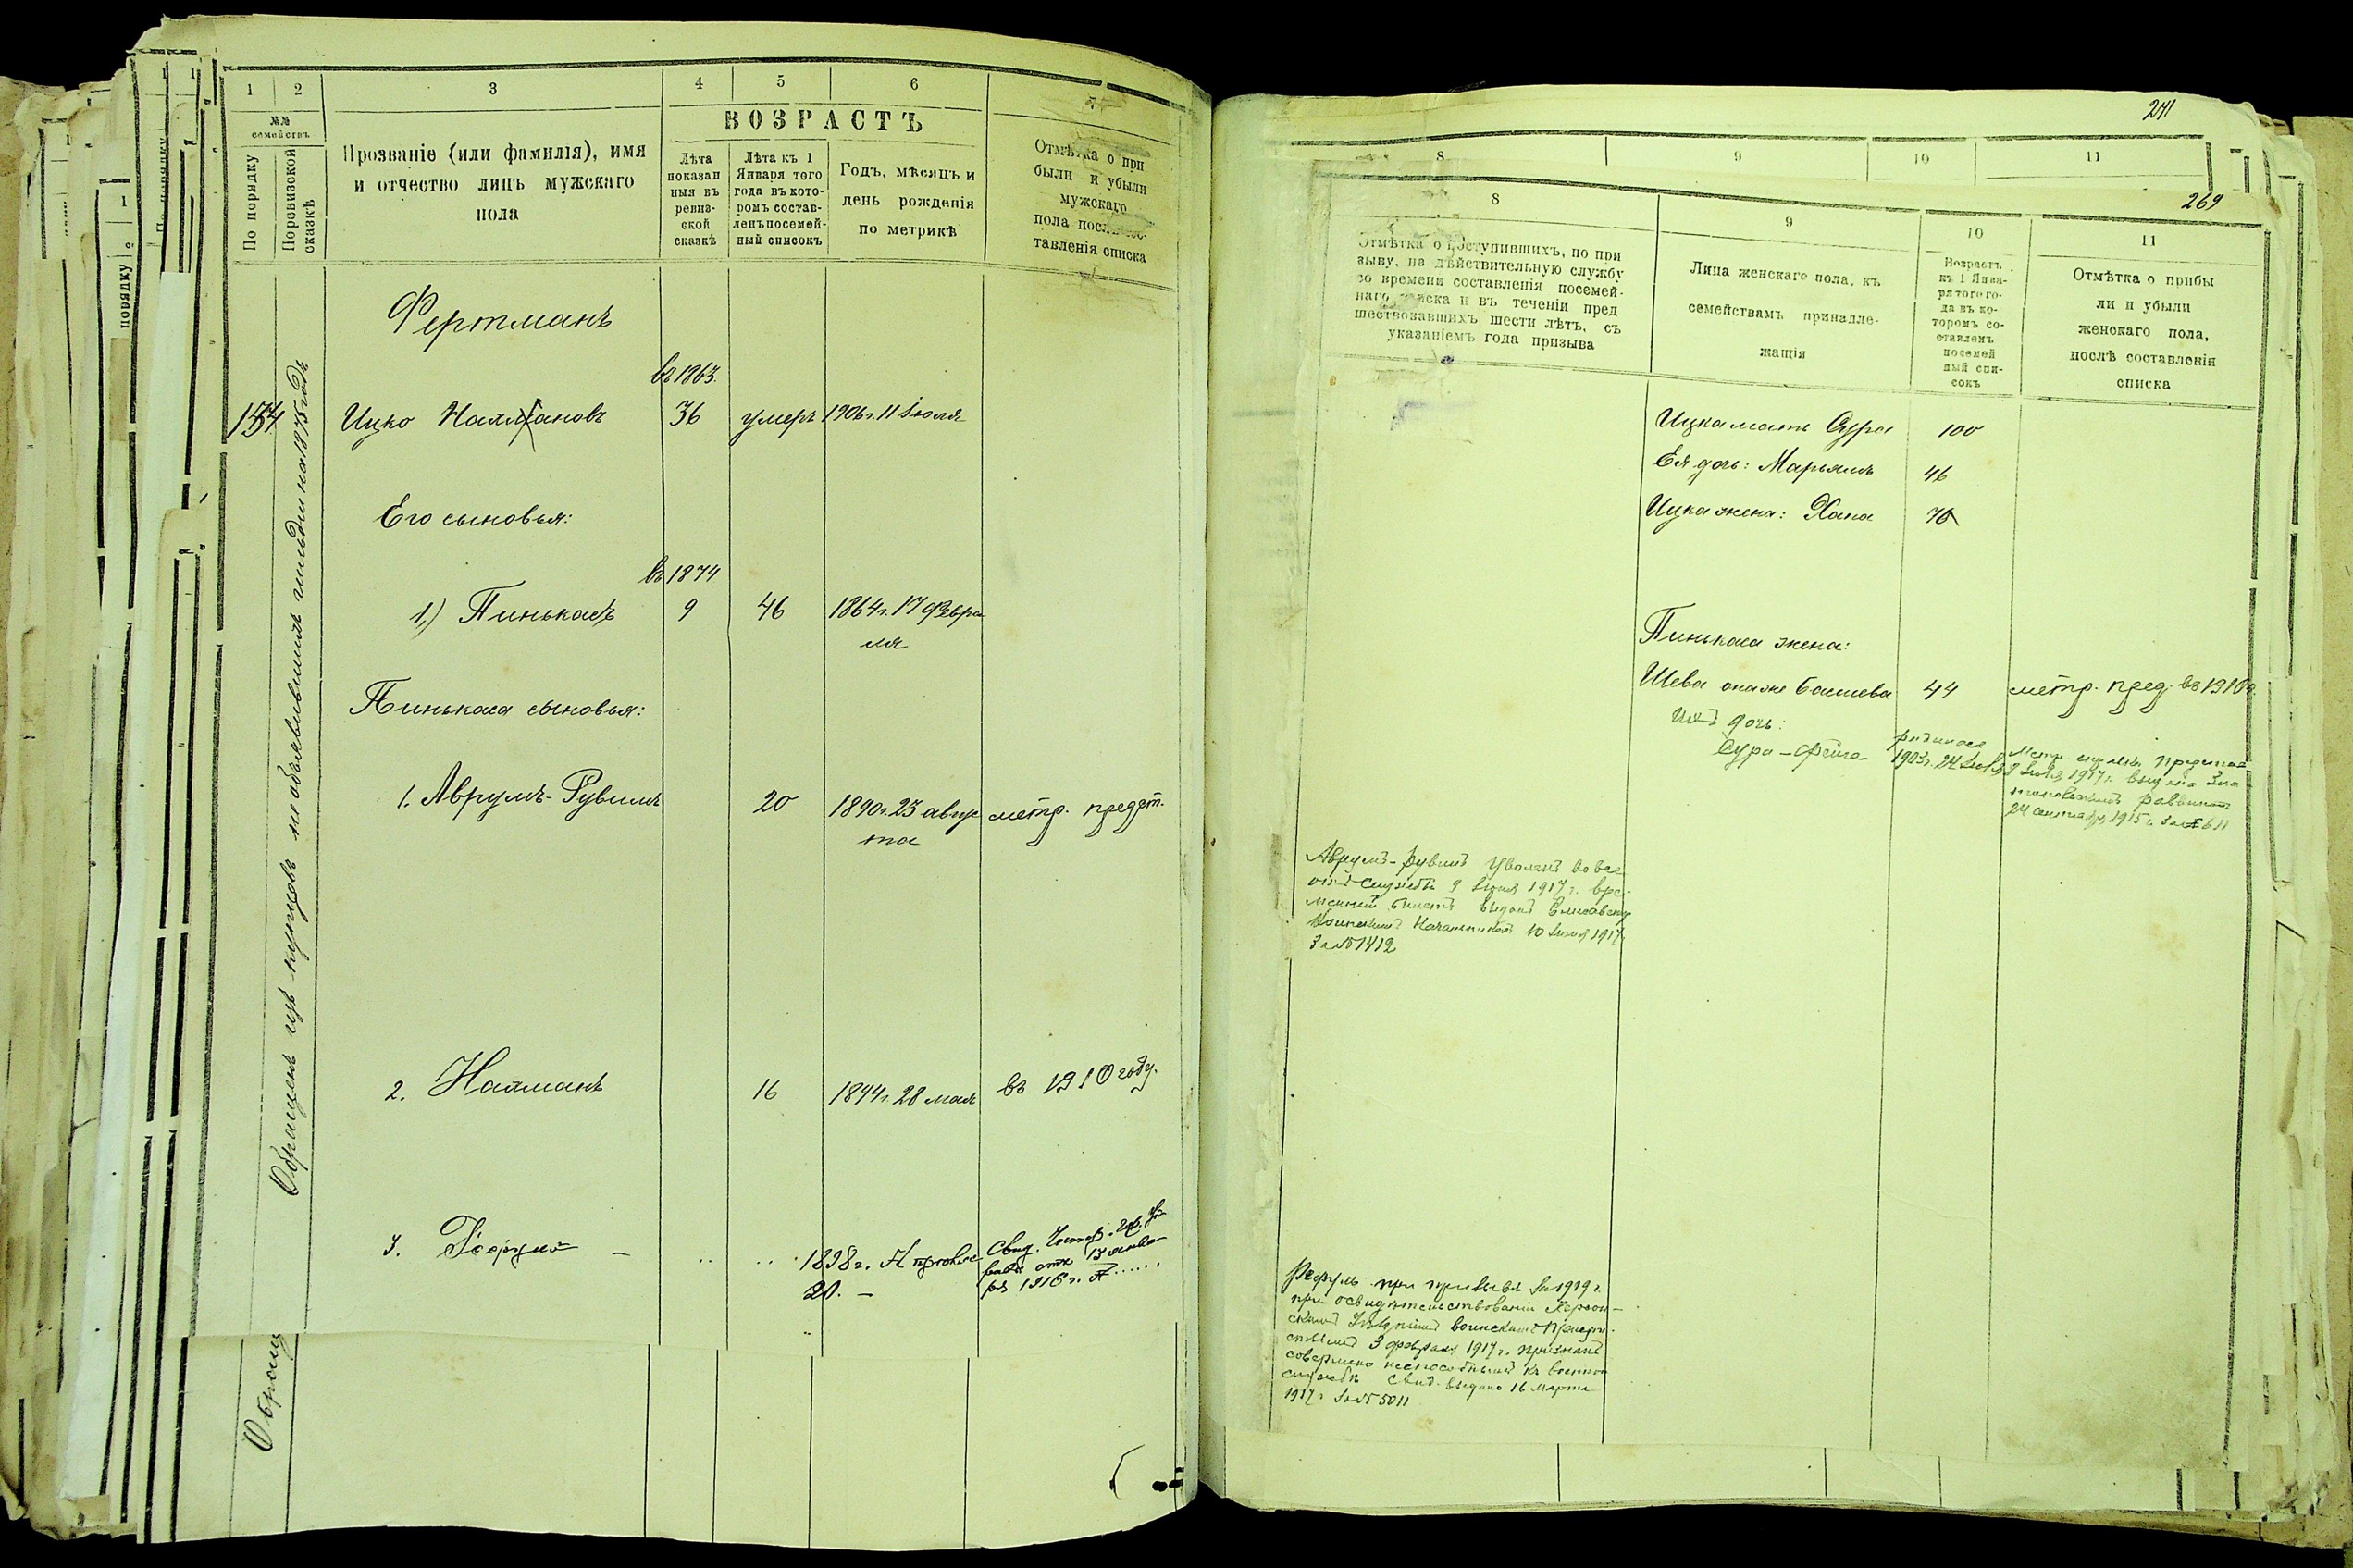 1 2 3 4 5 6 7
№№ семействъ
По порядку
Поревизской сказкѣ
Прозваніе (или фамилія), имя
и отчество лицъ мужскаго
пола
ВОЗРАСТЪ
Лѣта
показан
ныя въ
ревиз-
ской
сказкѣ
Лѣта къ 1
Января того
года въ кото-
ромъ состав-
ленъ посемей-
ный списокъ
Годъ, мѣсяцъ и
день рожденія
по метрикѣ
Отмѣтка о при
были и убыли
мужскаго
пола послѣ сос-
тавленія списка
Фертманъ
въ 1863.
154 Ицко Наймановъ 36 умеръ 1906 г. 11 Іюля
Его сыновья:
въ 1874
1.) Пинькасъ 9 46 1864 г. 17 Февра
ля
Пинькаса сыновья:
1. Аврумъ-Рувимъ 20 1890 г. 23 авгус метр. предст.
та
2. Найманъ 16 1894 г. 28 мая въ 1910 году.
3. 1898 г.
20. —
1916 г.
Обращенъ изъ купцовъ необъявившимъ гильдіи на 1875 годъ
Обращ
порядку
241
8 9 10 11
269
8 9 10 11
Отмѣтка о поступившихъ, по при
зыву, на дѣйствительную службу
со времени составленія посемей-
наго списка и въ теченіи пред
шествовавшихъ шести лѣтъ, съ
указаніемъ года призыва
Лица женскаго пола, къ
семействамъ принадле-
жащія
Возрастъ
къ 1 Янва-
ря того го-
да въ ко-
торомъ со-
ставленъ
посемей
ный спи-
сокъ
Отмѣтка о прибы
ли и убыли
женскаго пола,
послѣ составленія
списка
Ицка мать Сура 100
Ея дочь: Марьямъ 46
Ицка жена: Хана 70
Пинькаса жена:
Шева она же Башева 44 метр. пред. въ 1910 г.
Ихъ дочь:
Сура-Фейга родилась
1903 г. 24 Іюля
Метр. предст.
1917 г. выд.
раввиномъ
24 сентября 1915 г. за № 611
Аврумъ-Рувимъ уволенъ вовсе
отъ службы 9 Іюня 1917 г. вре-
менный билетъ выданъ Елисаветгр
Воинскимъ Начальникомъ 10 Іюня 1917 г.
за № 1412
при призывѣ 1919 г.
при освидѣтельствованіи Херсон-
скимъ Губернскимъ воинскимъ Присут-
ствіемъ 3 февраля 1917 г. признанъ
совершено неспособнымъ къ военной
службѣ свид. выдано 16 марта
1917 г. за № 5011